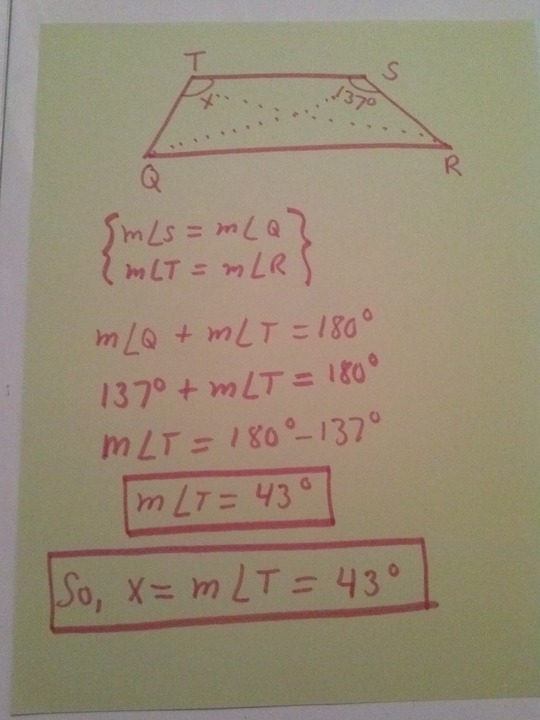 T S
x 137°
Q R
m∠S = m∠Q
m∠T = m∠R
m∠Q + m∠T = 180°
137° + m∠T = 180°
m∠T = 180° - 137°
m∠T = 43°
So, x = m∠T = 43°